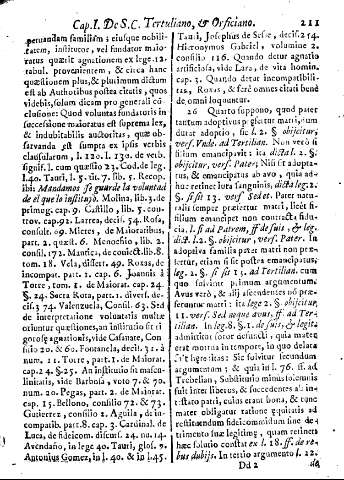 Cap. I. De S. C. Tertuliano, & Orficiano. 211
perpetuandam familiam : ejusque nobili-
tatem, institutor, vel fundator maio-
ratus quærit agnationem ex lege. 12.
tabul. provenientem, & circa hanc
quæstionem plus, & plurimum dictum
est ab Authoribus postea citatis, quos
videbis, solum dicam pro generali có-
clusione: Quod voluntas fundatoris in
successione maioratus est suprema lex,
& indubitabilis auctoritas, quæ ob-
servanda est sumpta ex ipsis verbis
clausularum, l. 120. l. 130. de verb.
signif. l. cum quæstio 23. Cod. de leg.
l. 40. Tauri, l. 5. tit. 7. lib. 5. Recop.
ibi: Mandamos se guarde la voluntad
de el que lo instituyò. Molina, lib. 3. de
primog. cap. 9. Castillo, lib. 5. con-
trov. cap. 92. Larrea, decis. 54. Rosa,
consult. 09. Mieres, de Maioratibus,
part. 2. quæst. 6. Menochio, lib. 2.
consil. 172. Mantica, de coniect. lib. 8.
tom. 18. Vela, dissert. 49. Roxas, de
incompat. part. 1. cap. 6. Joannis à
Torre, tom. 1. de Maiorat. cap. 24.
§. 24. Sacra Rota, part. 1. diversf. de-
cis. 374. Valenzuela, Consil. 63. Sed
de interpretatione voluntatis multæ
oriuntur quæstiones, an institutio sit ri
gorosæ agnationis, vide Casanate, Con-
silio 20. & 60. Fontanela, decis. 31. à
num. 11. Torre, part. 1. de Maiorat.
cap. 24. §. 25. An institutio sit mascu-
linitatis, vide Barbosa, voto 7. & 70.
num. 20. Pegas, part. 2. de Maiorat.
cap. 15. Bellono, consilio 72. & 73.
Gutierrez, consilio 2. Aguila, de in-
compatib. part. 8. cap. 3. Cardinal. de
Luca, de fideicom. discurs. 24. nu. 14.
Avendaño, in lege 40. Tauri, glos. 9.
Antonius Gomez, in l. 40. & in l. 45.
Tauri, Josephus de Sesse, decis. 214.
Hieronymus Gabriel, volumine 2.
consilio 116. Quando detur agnatio
artificiosa, vide Lara, de vita homin.
cap. 3. Quando detur incompatibili-
tas, Roxas, & ferè omnes citati benè
de omni loquuntur.
26 Quarto suppono, quod pater
tantum adoptivus præfertur matri, dum
durat adoptio, sic l. 2. §. obijcitur;
vers. Vnde. ad Tertilian. Non verò si
filium emancipavit: ita dicta l. 2. §.
obijcitur, vers. Pater; Nisi sit adopta-
tus, & emancipatus ab avo, quia ad-
huc retinet iura sanguinis, dicta leg. 2.
§. si sit 13. vers. Sed et. Pater natu-
ralis semper præfertur matri, licèt fi-
lium emancipet non contracta fidu-
cia, l. si ad Patrem, ff. de suis, & leg.
dict. l. 2. §. obijcitur, vers. Pater. In
adoptiva familia pater matri non præ-
fertur, etiam si sit postea emancipatus;
leg. 2. §. si sit 13. ad Tertilian. cum
quo solvunt primum argumentum.
Avus verò, & alij ascendentes nó præ-
feruntur matri: ita lege 2. §. obijcitur,
11. vers. Sed neque avus, ff. ad Ter-
tilian. In leg. 8. §. 1. de suis, & legit.
admittitur soror defuncti, quia mater
erat mortua in tempore, in quo delata
est hæreditas: Sic solvitur secundum
argumentum; & quia in l. 76. ff. ad
Trebelian, Substitutio ministolemnis
fuit inter liberos, & succedentes ab in-
testato patri, cuius erant bona, & tunc
mater obligatur ratione æquitatis ad
restituendum fideicommissum sine de-
trimento suæ legitimę, quam retinet
hæc solutio constat ex l. 18. ff. de re-
bus dubijs. In tertio argumento l. 22.
Dd 2 de